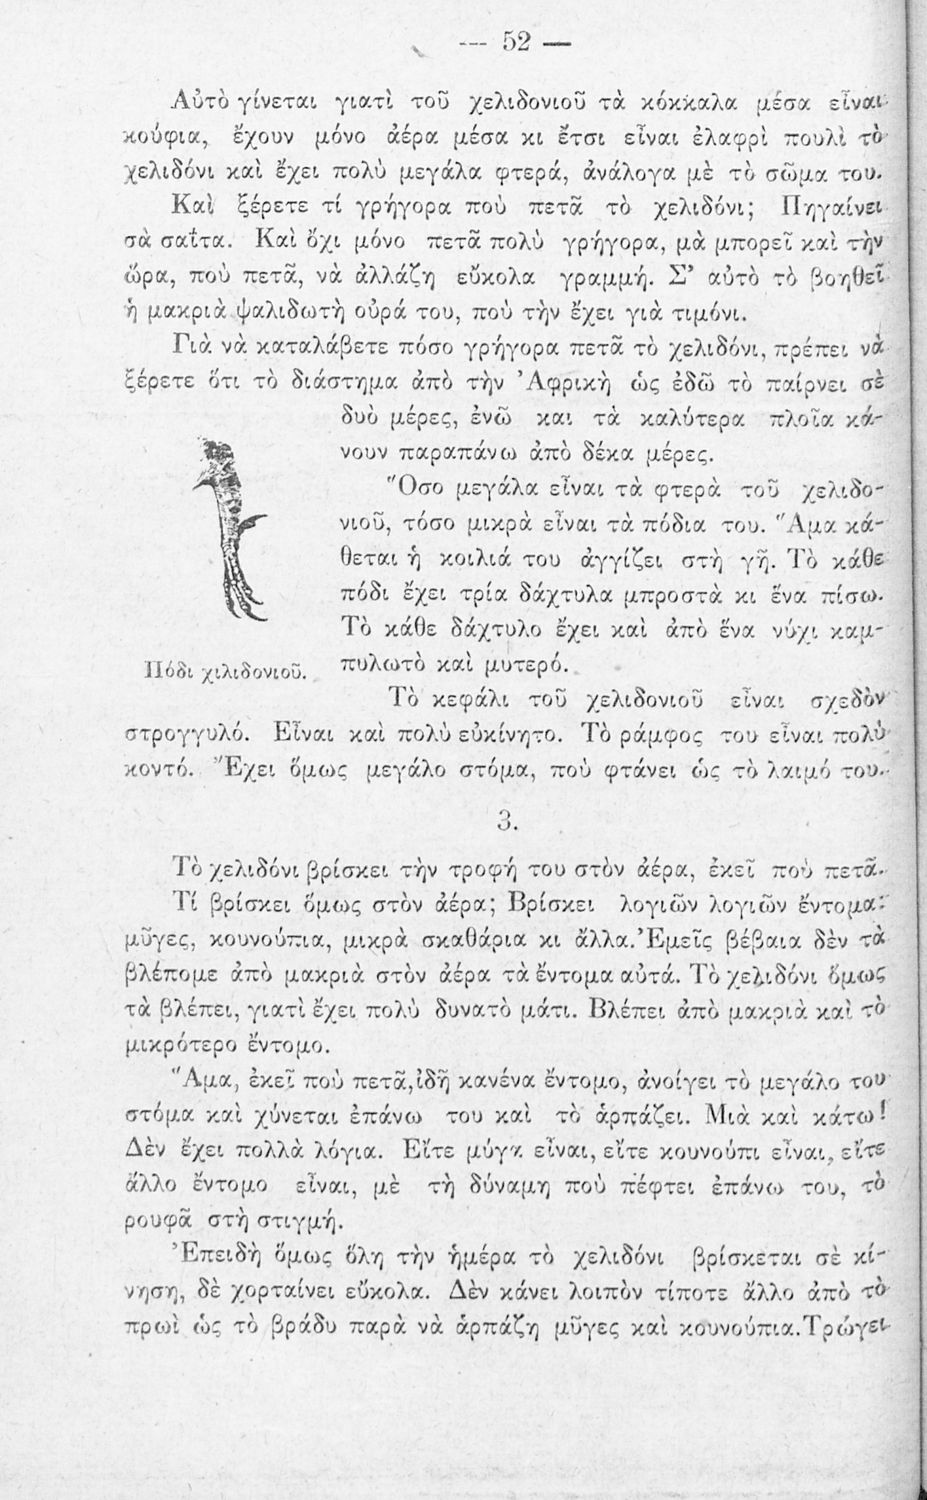 — 52 —
Αὐτὸ γίνεται γιατὶ τοῦ χελιδονιοῦ τὰ κόκκαλα μέσα εἶναι
κούφια, ἔχουν μόνο ἀέρα μέσα κι ἔτσι εἶναι ἐλαφρὶ πουλὶ τὸ
χελιδόνι καὶ ἔχει πολὺ μεγάλα φτερά, ἀνάλογα μὲ τὸ σῶμα του.
Καὶ ξέρετε τί γρήγορα ποὺ πετᾶ τὸ χελιδόνι; Πηγαίνει
σὰ σαΐτα. Καὶ ὄχι μόνο πετᾶ πολὺ γρήγορα, μὰ μπορεῖ καὶ τὴν
ὥρα, ποὺ πετᾶ, νὰ ἀλλάζῃ εὔκολα γραμμή. Σ’ αὐτὸ τὸ βοηθεῖ
ἡ μακριὰ ψαλιδωτὴ οὐρά του, ποὺ τὴν ἔχει γιὰ τιμόνι.
Γιὰ νὰ καταλάβετε πόσο γρήγορα πετᾶ τὸ χελιδόνι, πρέπει νὰ
ξέρετε ὅτι τὸ διάστημα ἀπὸ τὴν Ἀφρικὴ ὡς ἐδῶ τὸ παίρνει σὲ
δυὸ μέρες, ἐνῶ και τὰ καλύτερα πλοῖα κά-
νουν παραπάνω ἀπὸ δέκα μέρες.
Ὅσο μεγάλα εἶναι τὰ φτερὰ τοῦ χελιδο-
νιοῦ, τόσο μικρὰ εἶναι τὰ πόδια του. Ἅμα κά-
θεται ἡ κοιλιά του ἀγγίζει στὴ γῆ. Τὸ κάθε
πόδι ἔχει τρία δάχτυλα μπροστὰ κι ἕνα πίσω.
Τὸ κάθε δάχτυλο ἔχει καὶ ἀπὸ ἕνα νύχι καμ-
πυλωτὸ καὶ μυτερό.
Πόδι χιλιδονιοῦ.
Τὸ κεφάλι τοῦ χελιδονιοῦ εἶναι σχεδὸν
στρογγυλό. Εἶναι καὶ πολὺ εὐκίνητο. Τὸ ράμφος του εἶναι πολὺ
κοντό. Ἔχει ὅμως μεγάλο στόμα, ποὺ φτάνει ὡς τὸ λαιμό του.
3.
Τὸ χελιδόνι βρίσκει τὴν τροφή του στὸν ἀέρα, ἐκεῖ ποὺ πετᾶ.
Τί βρίσκει ὅμως στὸν ἀέρα; Βρίσκει λογιῶν λογιῶν ἔντομα:
μῦγες, κουνούπια, μικρὰ σκαθάρια κι ἄλλα. Ἐμεῖς βέβαια δὲν τὰ
βλέπομε ἀπὸ μακριὰ στὸν ἀέρα τὰ ἔντομα αὐτά. Τὸ χελιδόνι ὅμως
τὰ βλέπει, γιατὶ ἔχει πολὺ δυνατὸ μάτι. Βλέπει ἀπὸ μακριὰ καὶ τὸ
μικρότερο ἔντομο.
Ἅμα, ἐκεῖ ποὺ πετᾶ, ἰδῆ κανένα ἔντομο, ἀνοίγει τὸ μεγάλο του
στόμα καὶ χύνεται ἐπάνω του καὶ τὸ ἁρπάζει. Μιὰ καὶ κάτω!
Δὲν ἔχει πολλὰ λόγια. Εἴτε μύγα εἶναι, εἴτε κουνούπι εἶναι, εἴτε
ἄλλο ἔντομο εἶναι, μὲ τὴ δύναμη ποὺ πέφτει ἐπάνω του, τὸ
ρουφᾶ στὴ στιγμή.
Ἐπειδὴ ὅμως ὅλη τὴν ἡμέρα τὸ χελιδόνι βρίσκεται σὲ κί-
νηση, δὲ χορταίνει εὔκολα. Δὲν κάνει λοιπὸν τίποτε ἄλλο ἀπὸ τὸ
πρωὶ ὡς τὸ βράδυ παρὰ νὰ ἁρπάζῃ μῦγες καὶ κουνούπια. Τρώγει